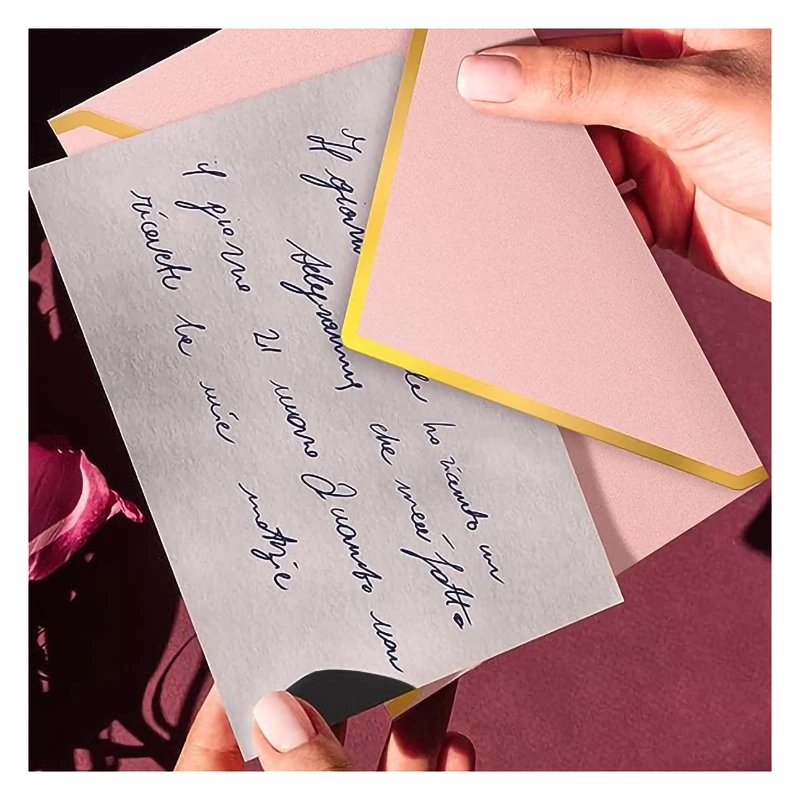 Il giorn le ho ricevuto un
telegramma che mea fatto
il giorno 21 marzo Quando non
ricevete le mie notizie